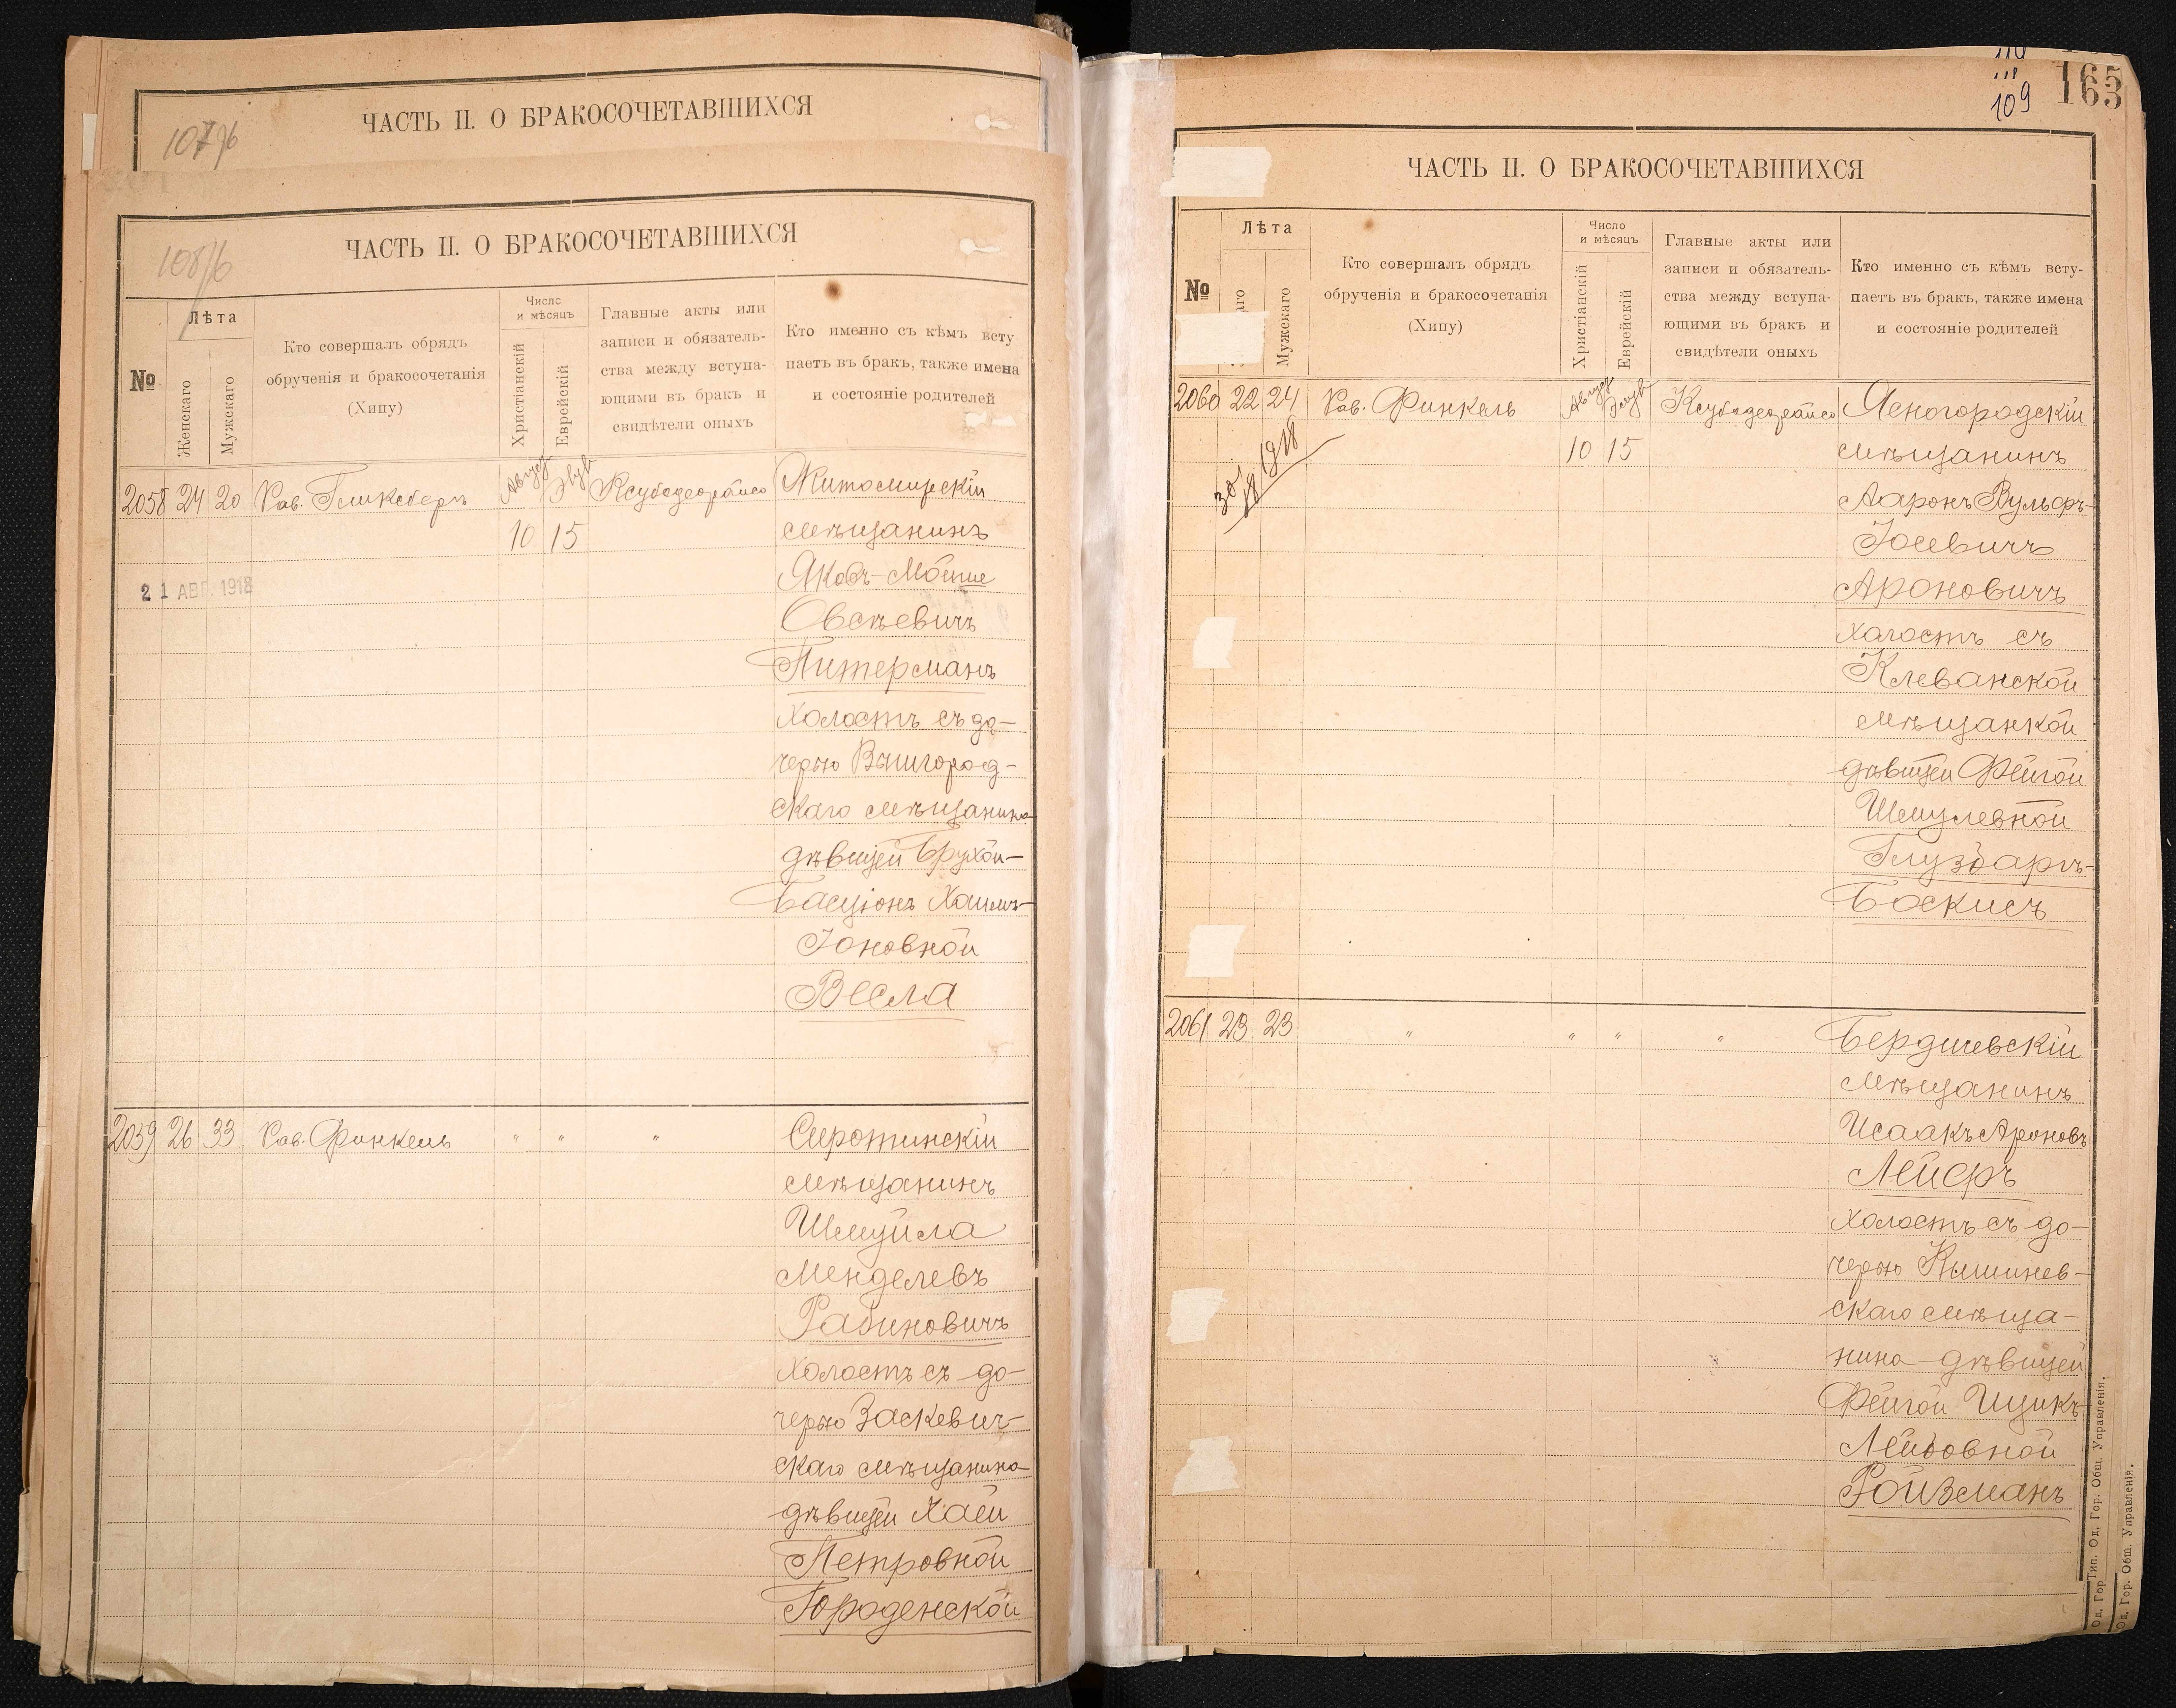 107/6
ЧАСТЬ II. О БРАКОСОЧЕТАВШИХСЯ
108/6
ЧАСТЬ II. О БРАКОСОЧЕТАВШИХСЯ
№
Лѣта
Женскаго
Мужскаго
Кто совершалъ обрядъ
обрученія и бракосочетанія
(Хипу)
Число
и мѣсяцъ
Христіанскій
Еврейскій
Главные акты или
записи и обязатель-
ства между вступа-
ющими въ бракъ и
свидѣтели оныхъ
Кто именно съ кѣмъ всту
паетъ въ бракъ, также имена
и состояніе родителей
2058 24 20 Рав. Гликсберъ Август Элул Ксубодеорайсо Житомирскій
10 15 мѣщанинъ
21 АВГ. 1918
Яковъ-Мойше
Овсѣевичъ
Питерманъ
холостъ съ до-
черью Вышгород-
скаго мѣщанина
дѣвицей Брухой-
Басціонъ Хаимъ-
Іоновной
Весла
2059 26 33 Рав. Финкель " " " Сиротинскій
мѣщанинъ
Шмуйла
Менделевъ
Рабиновичъ
холостъ съ до-
черью Заскевич-
скаго мѣщанина
дѣвицей Хаей
Петровной
Городенской
109
165
ЧАСТЬ II. О БРАКОСОЧЕТАВШИХСЯ
№
Лѣта
аго
Мужскаго
Кто совершалъ обрядъ
обрученія и бракосочетанія
(Хипу)
Число
и мѣсяцъ
Христіанскій
Еврейскій
Главные акты или
записи и обязатель-
ства между вступа-
ющими въ бракъ и
свидѣтели оныхъ
Кто именно съ кѣмъ всту-
паетъ въ бракъ, также имена
и состояніе родителей
2060 22 24 Рав. Финкель Август Элул Ксубодеорайсо Ясногородскій
10 15 мѣщанинъ
1918
Ааронъ Вульфъ-
Іосевичъ
Ароновичъ
холостъ съ
Клеванской
мѣщанкой
дѣвицей Фейгой
Шмулевной
Глузбаръ-
Боскисъ
2061 23 23 " " " " Бердичевскій
мѣщанинъ
Исаакъ Ароновъ
Лейфъ
холостъ съ до-
черью Кишинев-
скаго мѣща-
нина дѣвицей
Фейгой Ицикъ-
Лейбовной
Ройзманъ
Тип. Од. Гор. Общ. Управленія.
Од. Гор. Общ. Управленія.